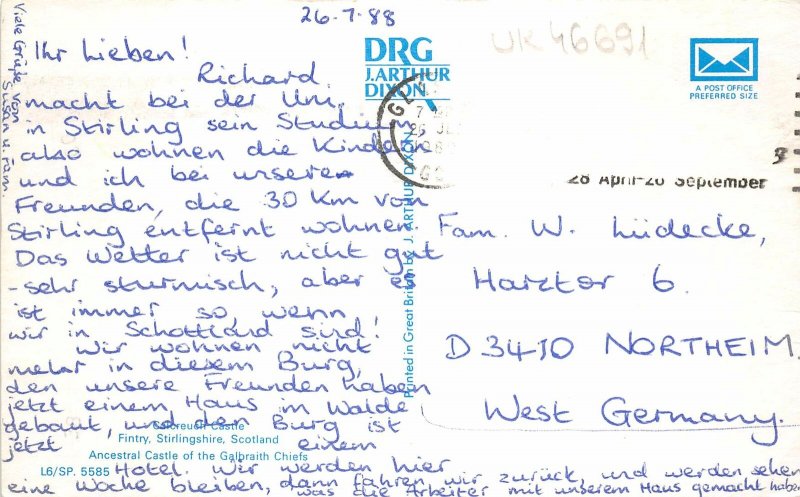 26-7-88
Ihr Lieben!
Richard
macht bei der Uni,
in Stirling sein Studium
also wohnen die Kinder
und ich bei unsere
Freunden, die 30 Km von
Stirling entfernt wohnen.
Das Wetter ist nicht gut
-sehr sturmisch, aber es
ist immer so, wenn
wir in Schottland sind!
Wir wohnen nicht
mehr in diesem Burg,
den unsere Freunden haben
jetzt einem Haus im Walde
gebaut, und den Burg ist
jetzt einem
Hotel. Wir werden hier
eine Woche bleiben, dann fahren wir zurück, und werden sehen
was die Arbeiter mit unserem Haus gemacht haben
Viele Grüße von
Susan u. Fam.
Culcreuch Castle
Fintry, Stirlingshire, Scotland
Ancestral Castle of the Galbraith Chiefs
L6/SP. 5585
DRG
J. ARTHUR
DIXON
Printed in Great Britain by J. ARTHUR DIXON
UK46691
A POST OFFICE
PREFERRED SIZE
28 April-26 September
Fam. W. Lüdecke,
Harztor 6.
D 3410 NORTHEIM
West Germany.